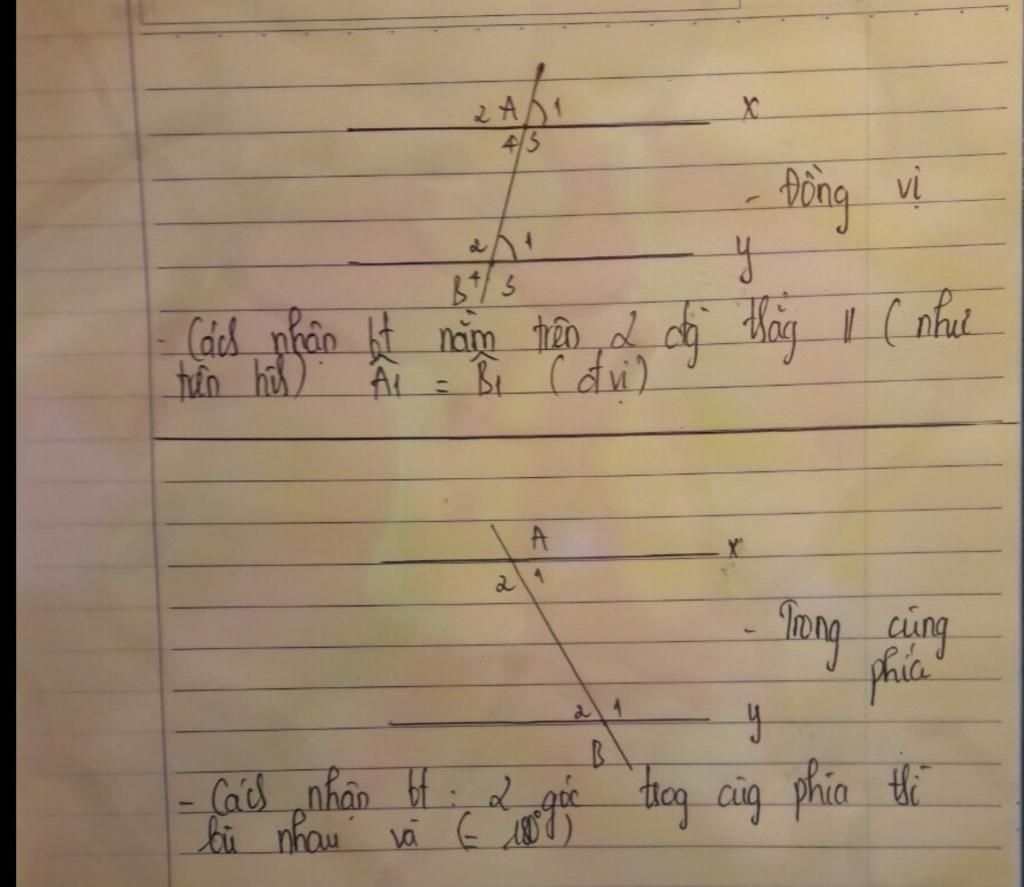 2 A 1 x
4 3
- Đồng vị
2 1 y
B 4 3
- Cách nhận bt nằm trên 2 đg thẳg // ( như
trên hìh) Â1 = B̂1 ( đ vị )
A x
2 1
- Trong cùng
phía
2 1 y
B
- Cách nhận bt : 2 góc trog cùg phía thì
bù nhau và (= 180°)